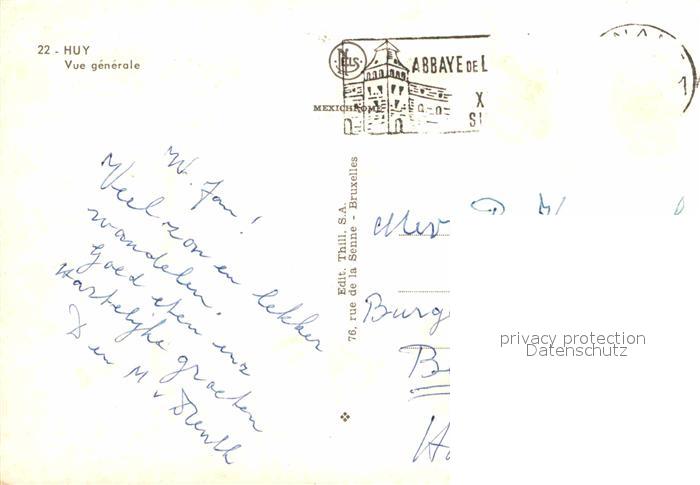 22 - HUY
Vue générale
NELS
ABBAYE DE L
X
SI
MEXICHROME
W. Jan!
Veel zon en lekker
wandelen.
Goed eten enz
Hartelijke groeten
D en M v Drenth
Edit. Thill. S.A.
76, rue de la Senne - Bruxelles
Mev
Burg
privacy protection
Datenschutz